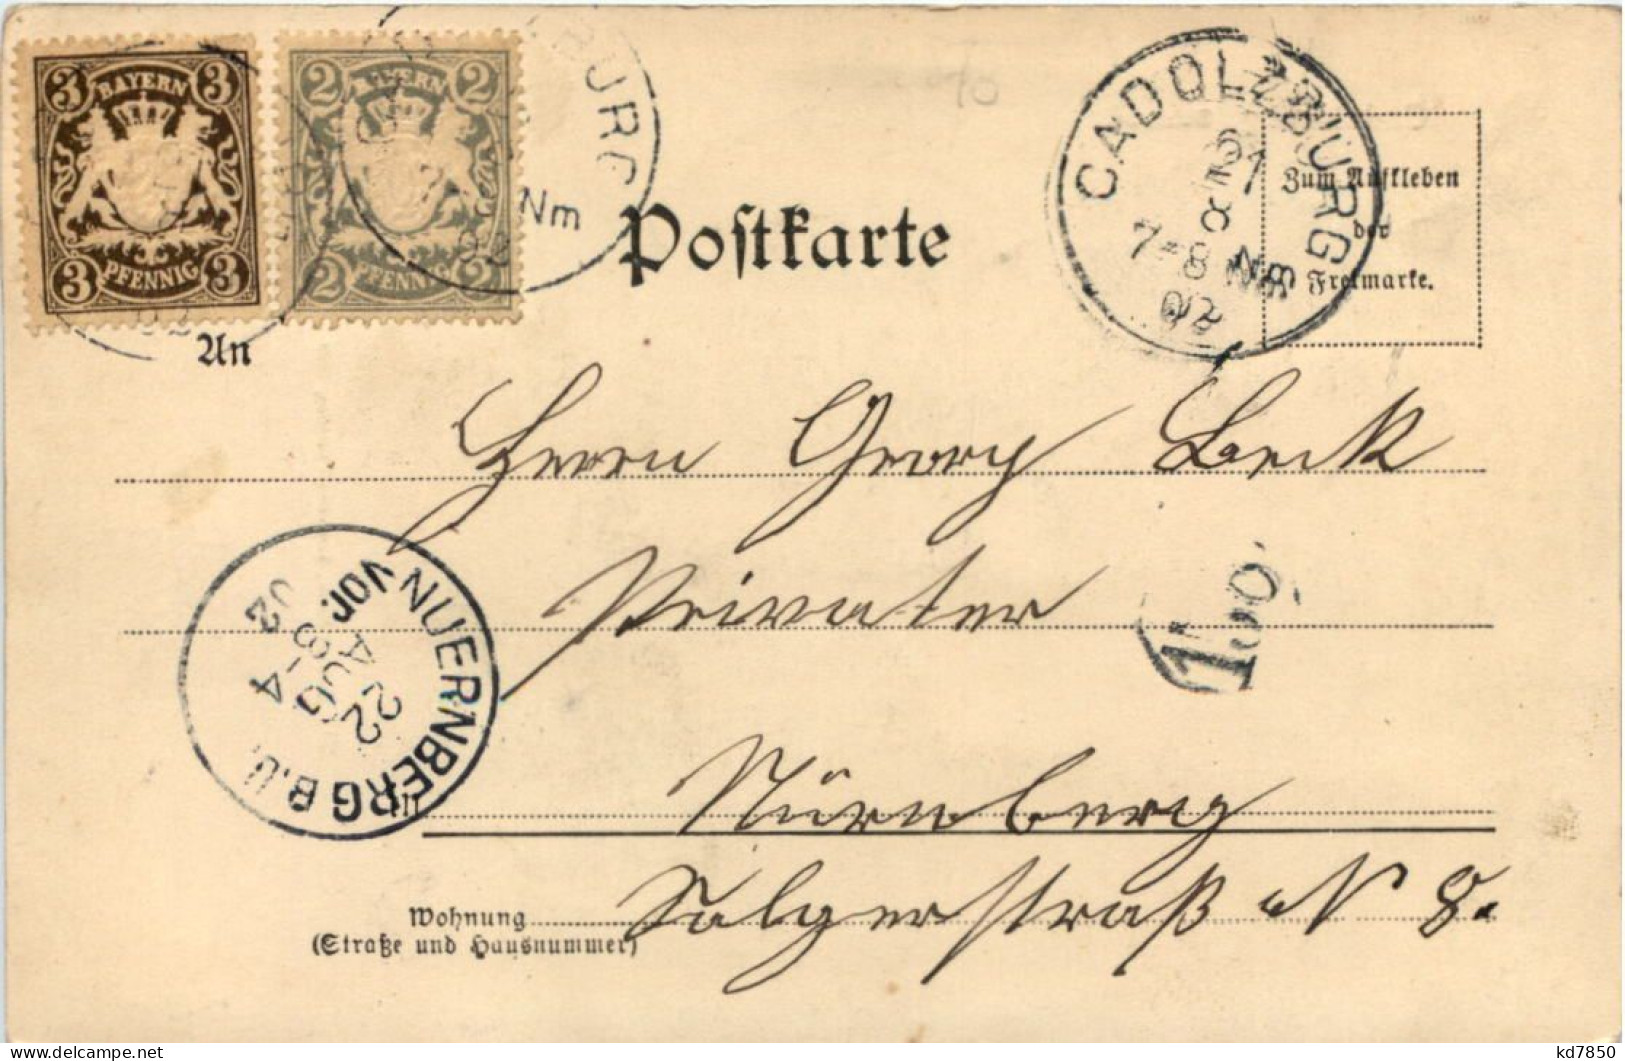 3 BAYERN 3
3 PFENNIG 3
2 BAYERN 2
2 PFENNIG 2
BURG
Nm
02
CADOLZBURG
7-8 Nm
02
Zum Aufkleben
der
Freimarke.
Postkarte
An
Herrn Georg Beck
Privatier
NUERNBERG B.U.
Vor.
3-4
22
AUG
02
Nürnberg
Salgerstraß N 8.
Wohnung
(Straße und Hausnummer)
kd7850